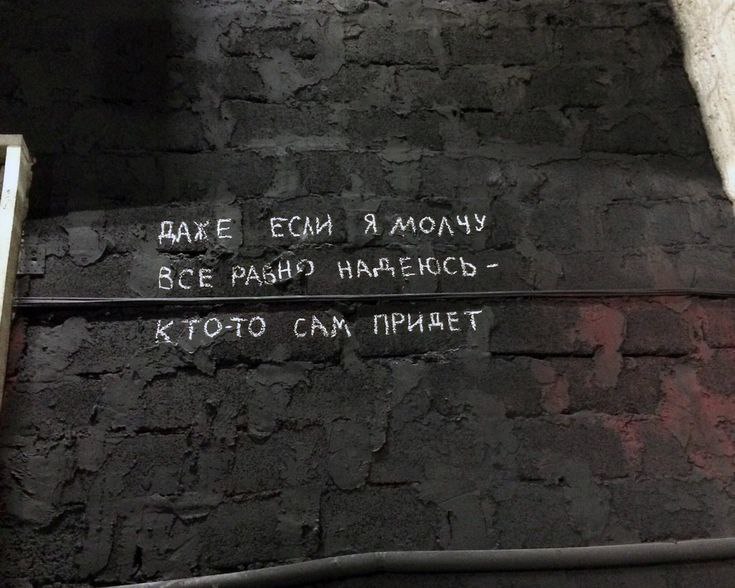 ДАЖЕ ЕСЛИ Я МОЛЧУ
ВСЕ РАВНО НАДЕЮСЬ -
КТО-ТО САМ ПРИДЕТ